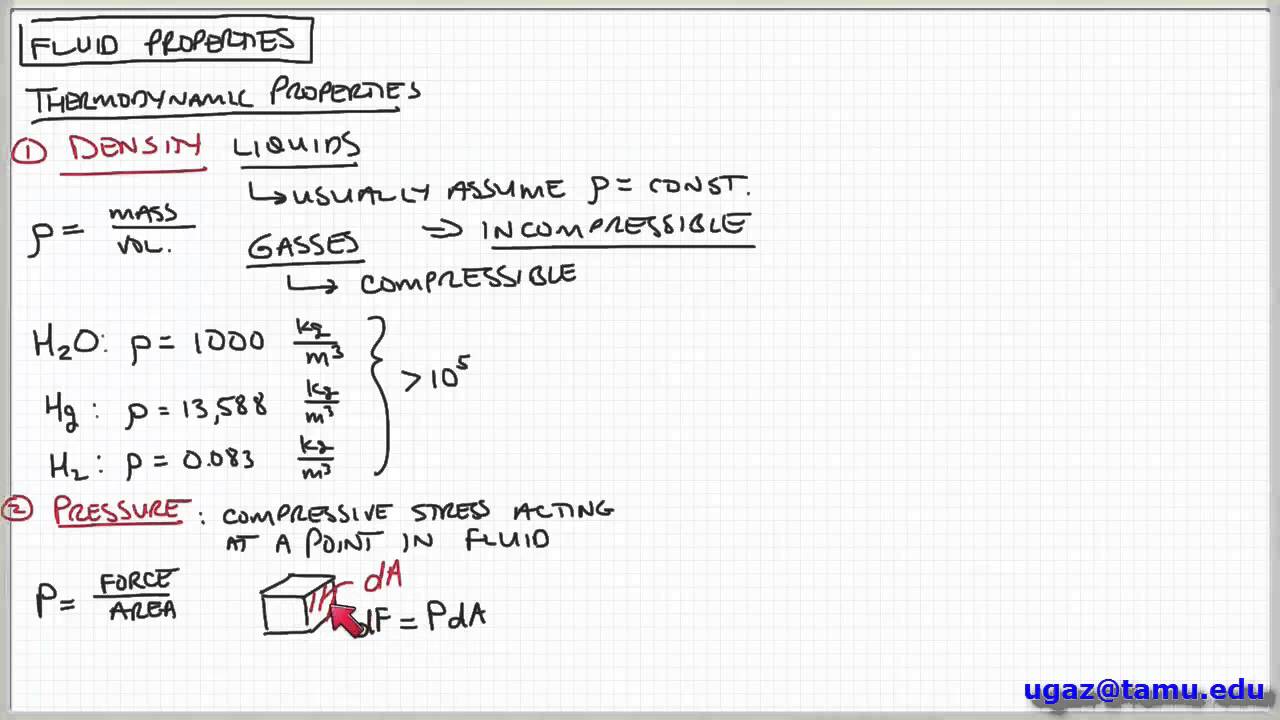 FLUID PROPERTIES
THERMODYNAMIC PROPERTIES
① DENSITY LIQUIDS
↳ USUALLY ASSUME ρ = CONST.
ρ = MASS / VOL.
⇒ INCOMPRESSIBLE
GASSES
↳ COMPRESSIBLE
H₂O: ρ = 1000 kg/m³
> 10⁵
Hg: ρ = 13,588 kg/m³
H₂: ρ = 0.083 kg/m³
② PRESSURE: COMPRESSIVE STRESS ACTING
AT A POINT IN FLUID
P = FORCE / AREA
dA
dF = PdA
ugaz@tamu.edu